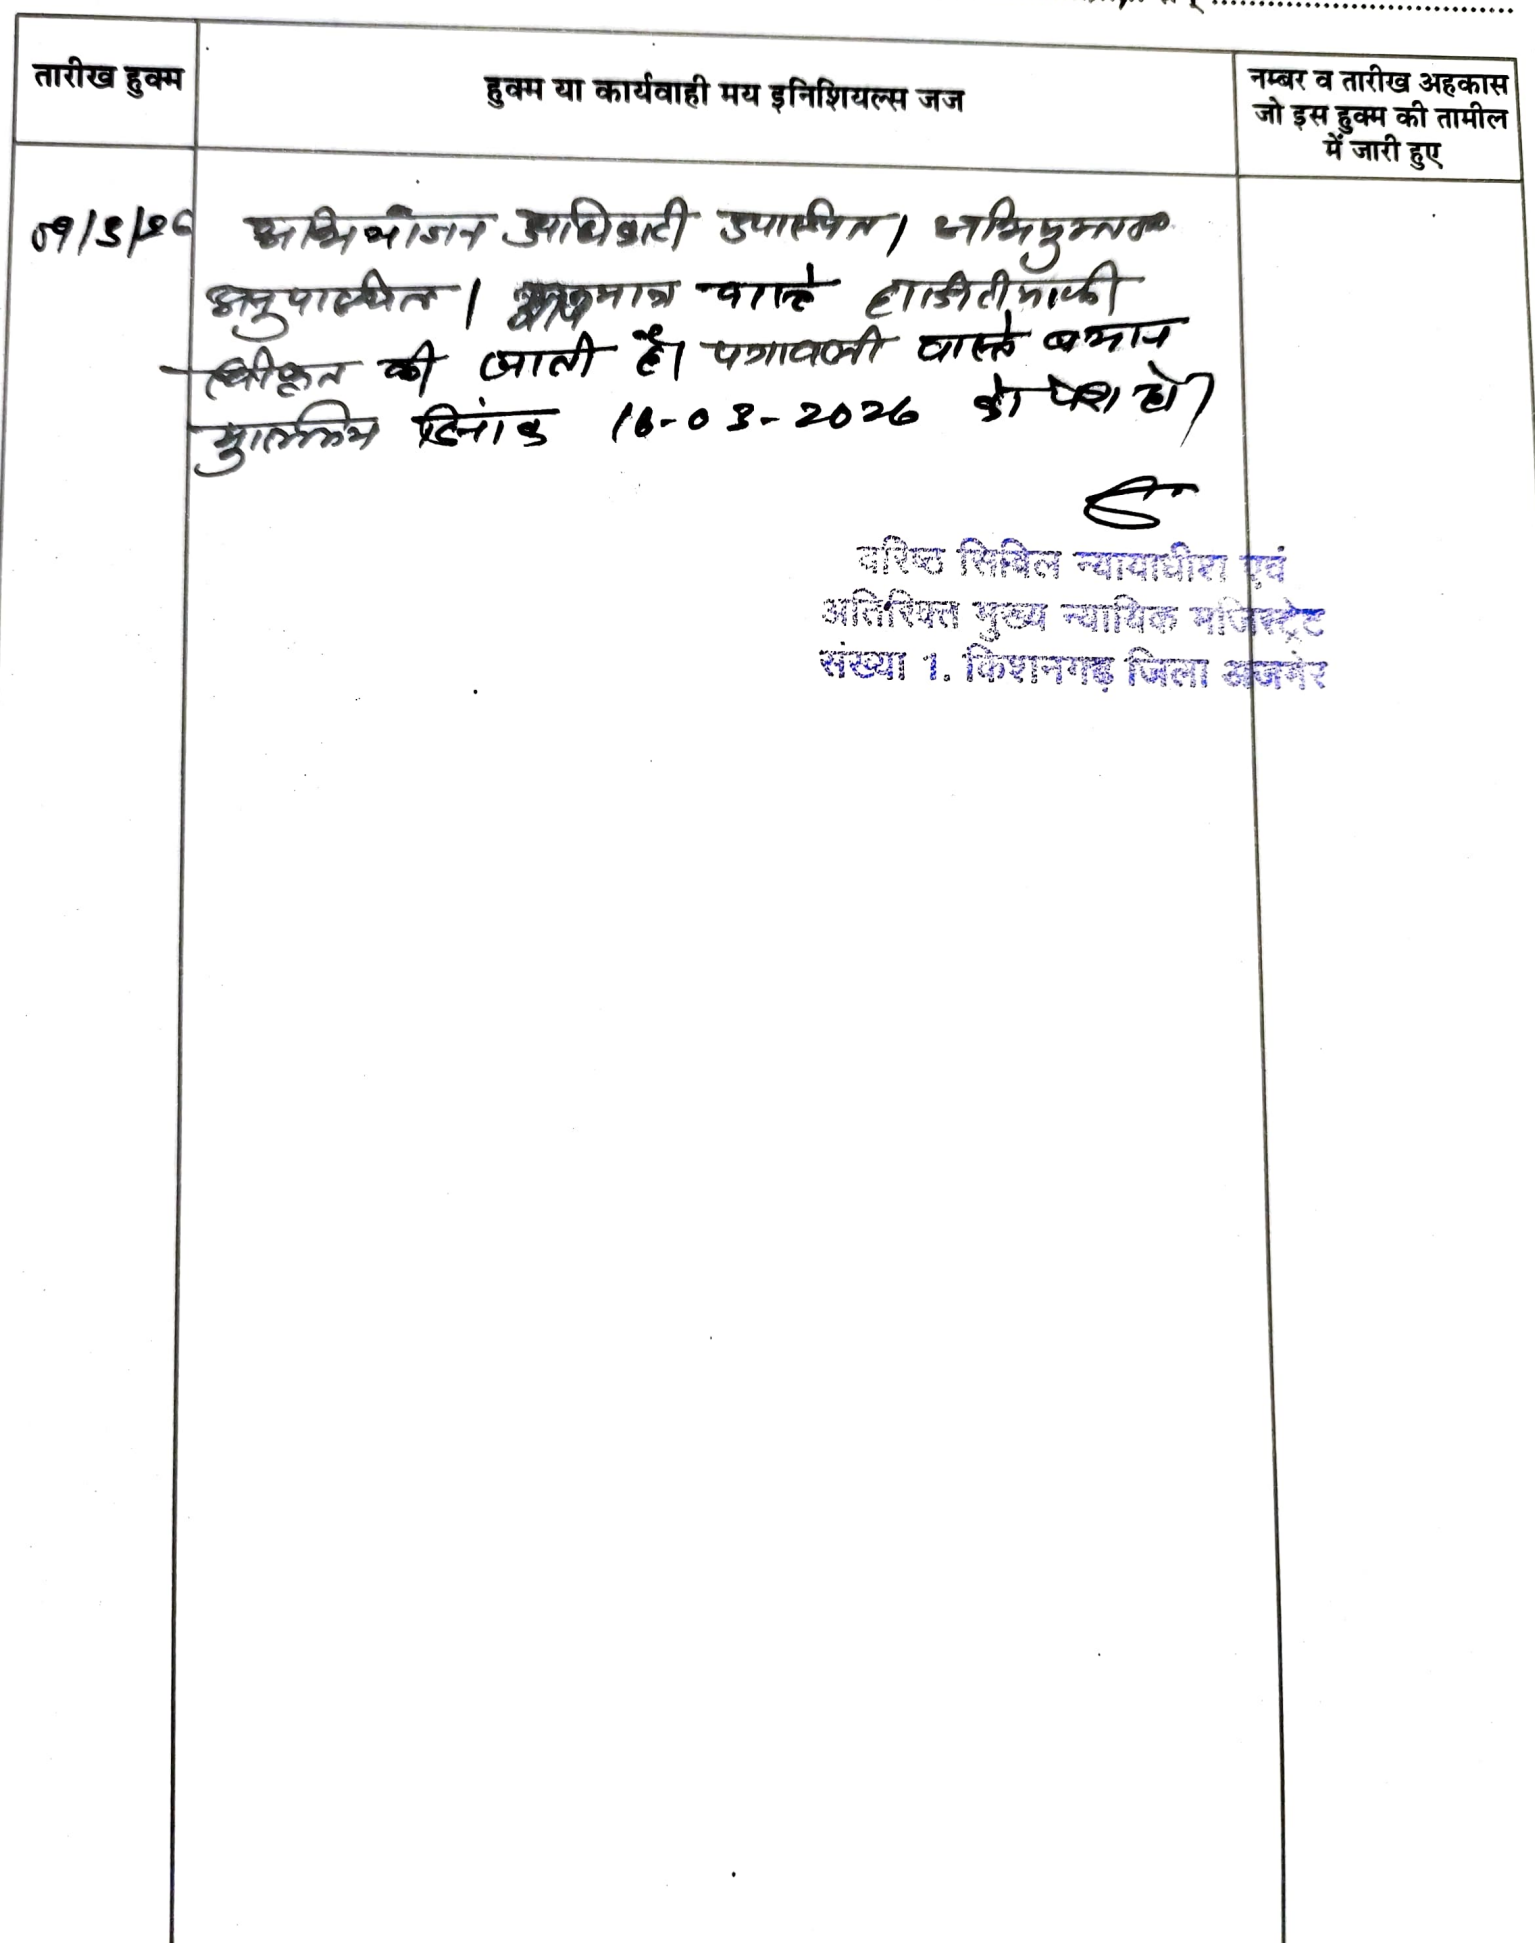 तारीख हुक्म
हुक्म या कार्यवाही मय इनिशियल्स जज
नम्बर व तारीख अहकास
जो इस हुक्म की तामील
में जारी हुए
09/3/26
अभियोजन अधिकारी उपस्थित। अभियुक्त
अनुपस्थित। मात्र वास्ते हाजरीमाफी
स्वीकृत की जाती है। पत्रावली वास्ते बयान
मुल्जिम दिनांक 16-03-2026 को पेश हो।
वरिष्ठ सिविल न्यायाधीश एवं
अतिरिक्त मुख्य न्यायिक मजिस्ट्रेट
संख्या 1. किशनगढ़ जिला अजमेर